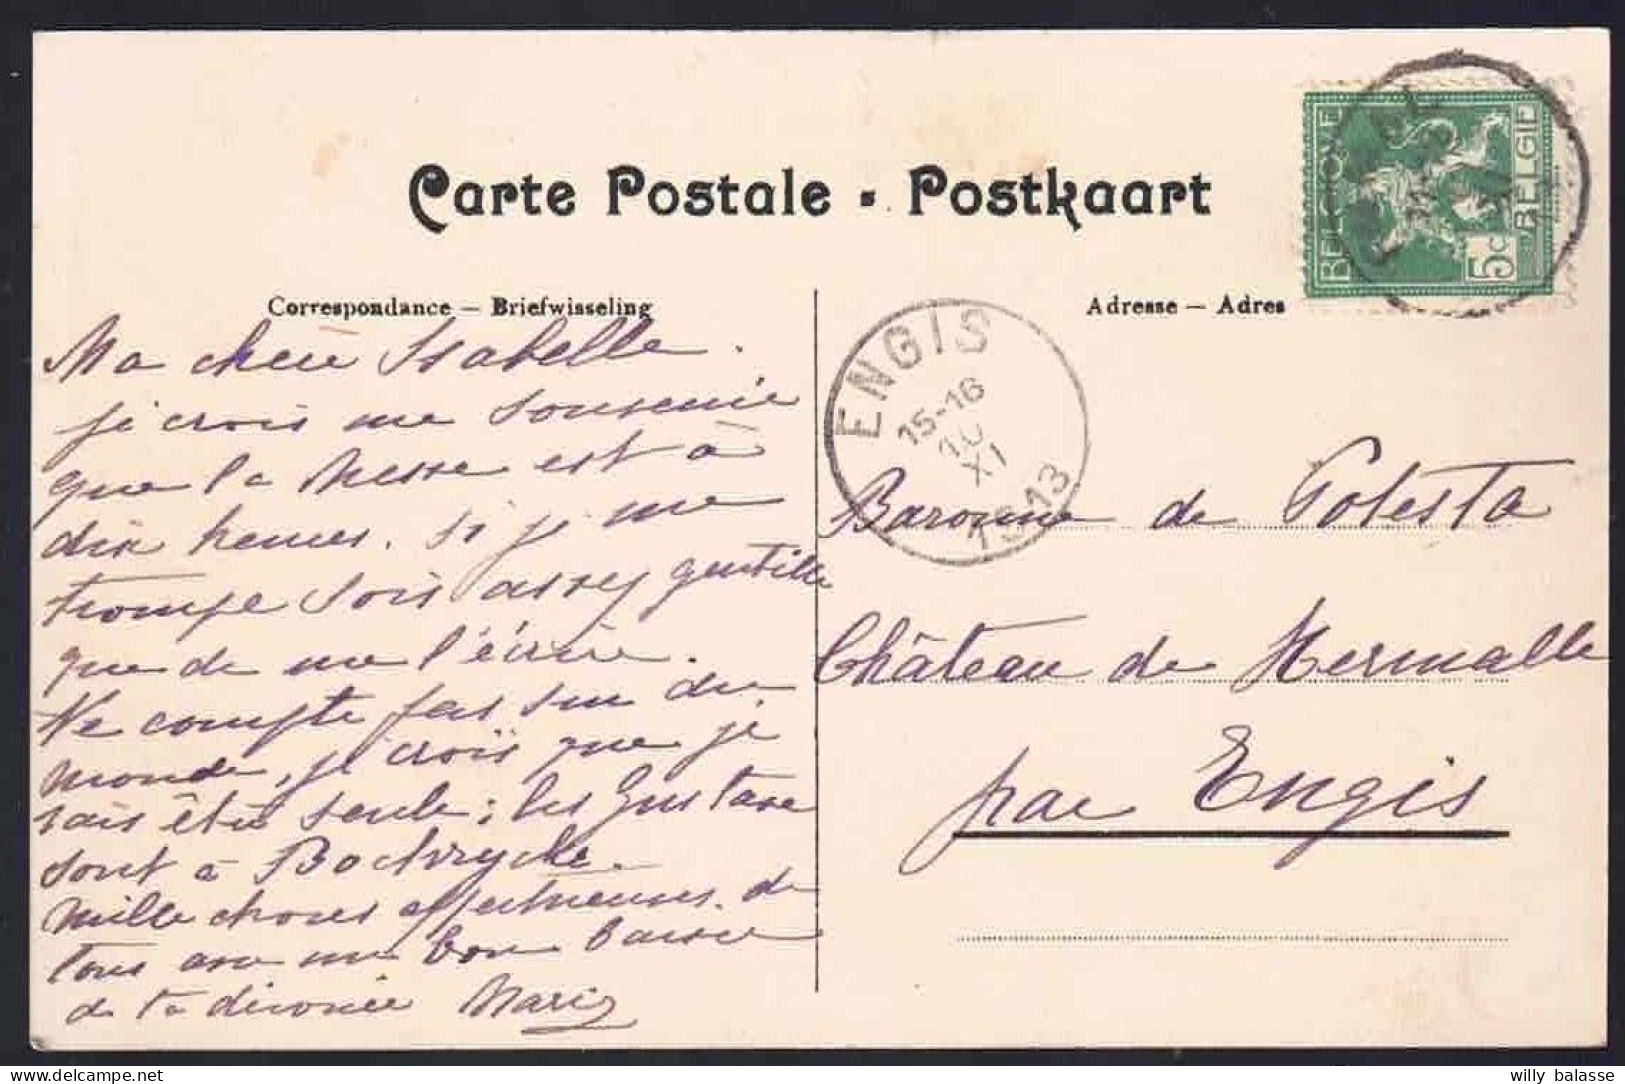 Carte Postale - Postkaart
Correspondance — Briefwisseling
Adresse — Adres
BELGIQUE
BELGIË
5c
ENGIS
15-16
10
XI
1913
Ma chère Isabelle.
je crois me souvenir
que la messe est à
dix heures. si je me
trompe sois assez gentille
que de me l'écrire.
Ne compte pas sur du
monde, je crois que je
sais être seule; les Gustave
sont à Bodvrycke.
Mille choses affectueuses de
tous avec un bon baiser
de ta dévouée Marie
Baronne de Potesta
Château de Hermalle
par Engis
willy balasse